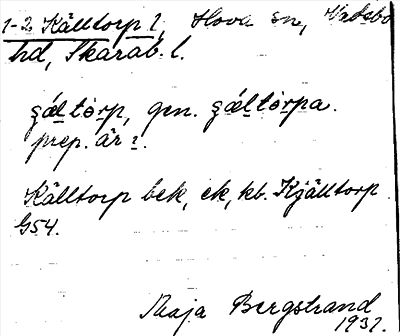 1-2 Källtorp 1, Hova sn, Vadsbo
hd, Skarab. l.
çæ̀l tòrp, gen. çæ̀l tòrpa.
prep. är i.
Källtorp bek, ek, kb. Kjälltorp
G54.
Maja Bergstrand
1937.